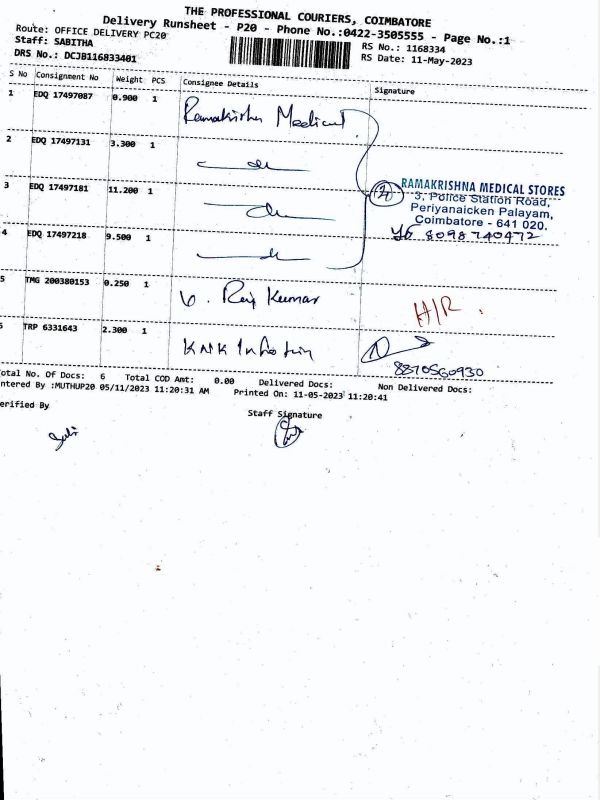 THE PROFESSIONAL COURIERS, COIMBATORE
Delivery Runsheet - P20 - Phone No.:0422-3505555 - Page No.:1
Route: OFFICE DELIVERY PC20
RS No.: 1168334
Staff: SABITHA
RS Date: 11-May-2023
DRS No.: DCJB116833401
S No Consignment No Weight PCS Consignee Details Signature
1 EDQ 17497087 0.900 1 Ramakrishna Medical
2 EDQ 17497131 3.300 1 do
3 EDQ 17497181 11.200 1 do
RAMAKRISHNA MEDICAL STORES
3, Police Station Road,
Periyanaicken Palayam,
Coimbatore - 641 020.
8098740472
4 EDQ 17497218 9.500 1 do
5 TMG 200380153 0.250 1 V. Raj Kumar H/R.
6 TRP 6331643 2.300 1 KMK
8870560930
otal No. Of Docs: 6 Total COD Amt: 0.00 Delivered Docs: Non Delivered Docs:
ntered By :MUTHUP20 05/11/2023 11:20:31 AM Printed On: 11-05-2023 11:20:41
erified By
Staff Signature